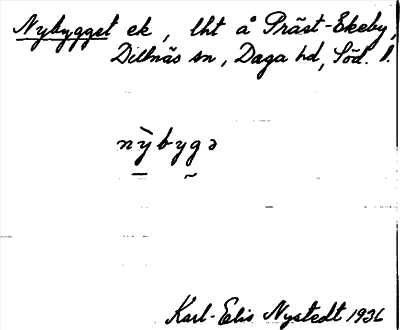 Nybygget ek, lht å Präst-Ekeby,
Dillnäs sn, Daga hd, Söd. l.
nỳbygə
Karl-Elis Nystedt 1936